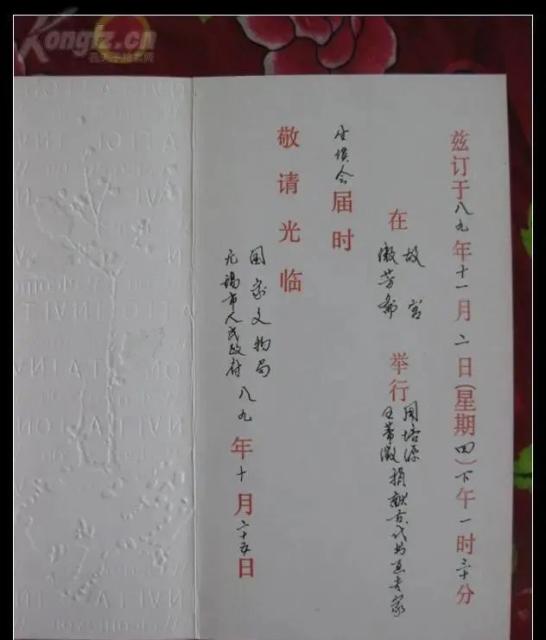 Kongfz.cn
兹订于八九年十一月二日(星期四)下午一时三十分
在故宫
漱芳斋
举行周培源
王蒂澂捐献古代书画专家
座谈会届时
敬请光临
国家文物局
无锡市人民政府
八九年十月二十五日